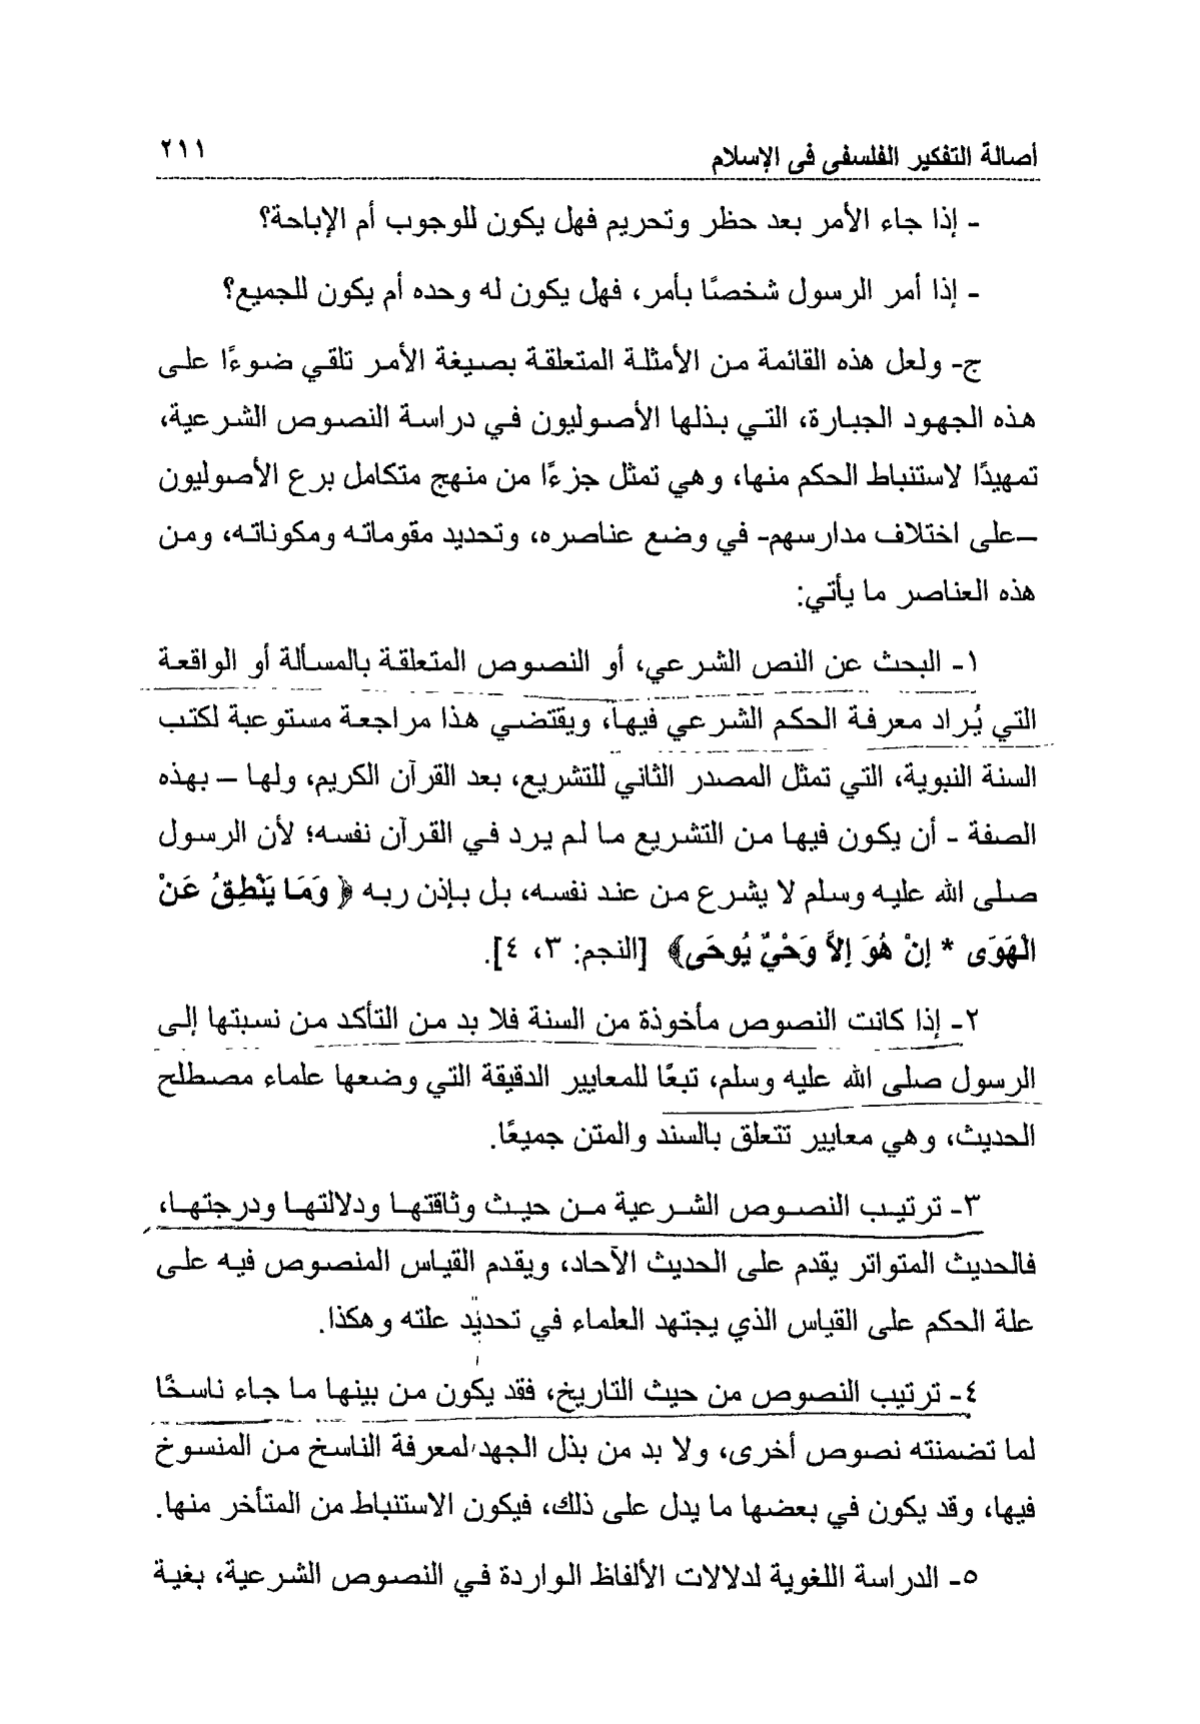 أصالة التفكير الفلسفى فى الإسلام ٢١١
- إذا جاء الأمر بعد حظر وتحريم فهل يكون للوجوب أم الإباحة؟
- إذا أمر الرسول شخصًا بأمر، فهل يكون له وحده أم يكون للجميع؟
ج- ولعل هذه القائمة من الأمثلة المتعلقة بصيغة الأمر تلقي ضوءًا على
هذه الجهود الجبارة، التي بذلها الأصوليون في دراسة النصوص الشرعية،
تمهيدًا لاستنباط الحكم منها، وهي تمثل جزءًا من منهج متكامل برع الأصوليون
–على اختلاف مدارسهم- في وضع عناصره، وتحديد مقوماته ومكوناته، ومن
هذه العناصر ما يأتي:
١- البحث عن النص الشرعي، أو النصوص المتعلقة بالمسألة أو الواقعة
التي يُراد معرفة الحكم الشرعي فيها، ويقتضي هذا مراجعة مستوعبة لكتب
السنة النبوية، التي تمثل المصدر الثاني للتشريع، بعد القرآن الكريم، ولها – بهذه
الصفة - أن يكون فيها من التشريع ما لم يرد في القرآن نفسه؛ لأن الرسول
صلى الله عليه وسلم لا يشرع من عند نفسه، بل بإذن ربه ﴿ وَمَا يَنْطِقُ عَنْ
الْهَوَى * إِنْ هُوَ إِلاَّ وَحْيٌ يُوحَى﴾ [النجم: ٣، ٤].
٢- إذا كانت النصوص مأخوذة من السنة فلا بد من التأكد من نسبتها إلى
الرسول صلى الله عليه وسلم، تبعًا للمعايير الدقيقة التي وضعها علماء مصطلح
الحديث، وهي معايير تتعلق بالسند والمتن جميعًا.
٣- ترتيب النصوص الشرعية من حيث وثاقتها ودلالتها ودرجتها،
فالحديث المتواتر يقدم على الحديث الآحاد، ويقدم القياس المنصوص فيه على
علة الحكم على القياس الذي يجتهد العلماء في تحديد علته وهكذا.
٤- ترتيب النصوص من حيث التاريخ، فقد يكون من بينها ما جاء ناسخًا
لما تضمنته نصوص أخرى، ولا بد من بذل الجهد لمعرفة الناسخ من المنسوخ
فيها، وقد يكون في بعضها ما يدل على ذلك، فيكون الاستنباط من المتأخر منها.
٥- الدراسة اللغوية لدلالات الألفاظ الواردة في النصوص الشرعية، بغية